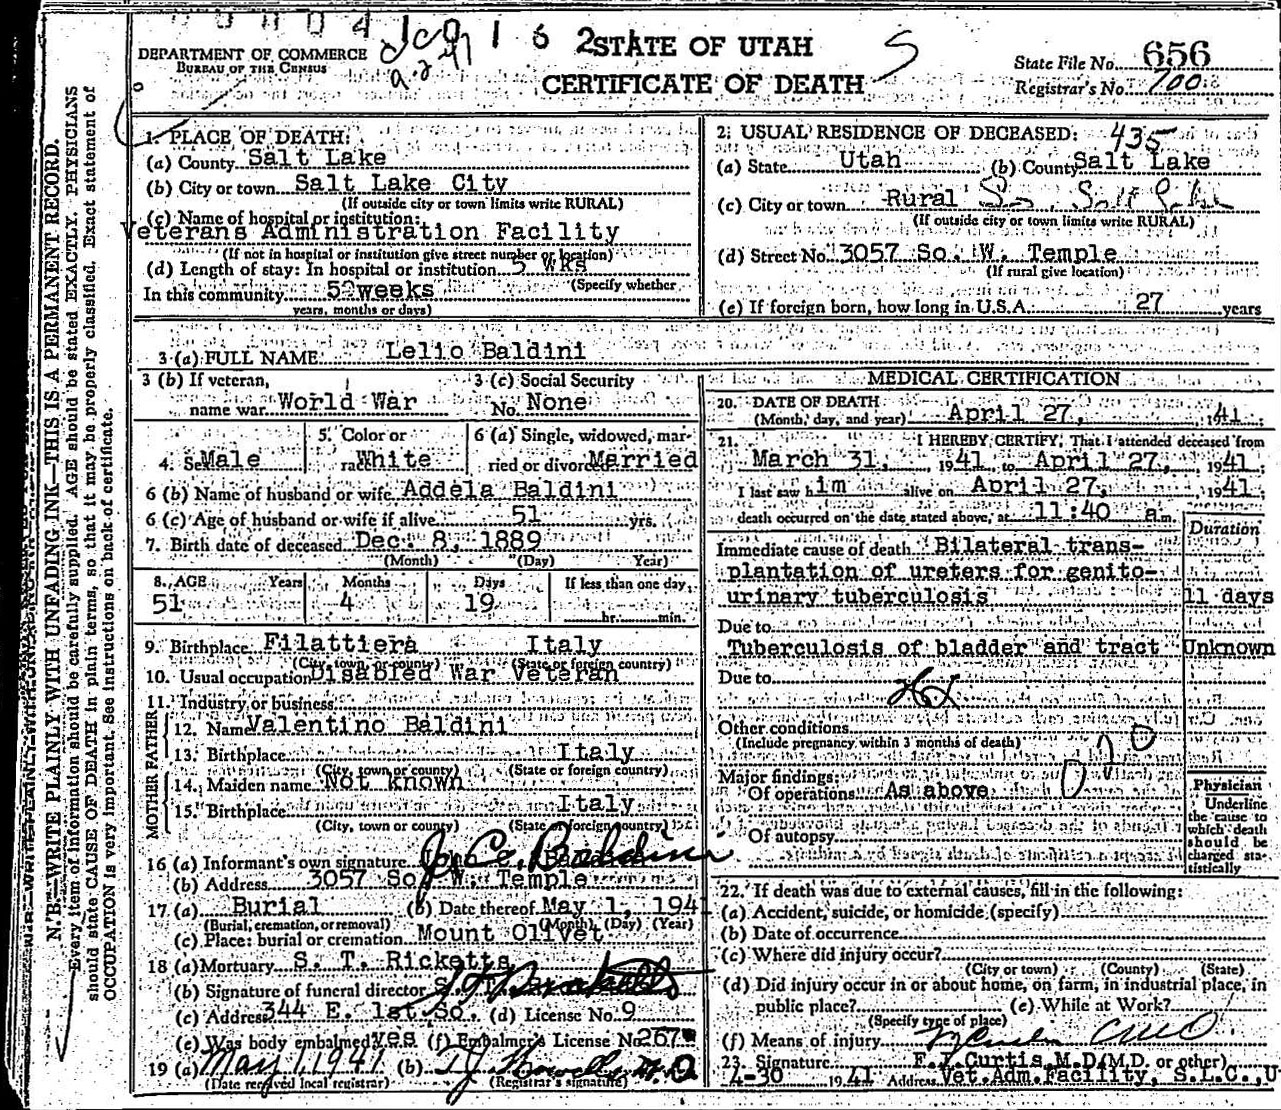 DEPARTMENT OF COMMERCE
BUREAU OF THE CENSUS
STATE OF UTAH
CERTIFICATE OF DEATH
State File No. 656
Registrar's No. 700
N. B.—WRITE PLAINLY WITH UNFADING INK—THIS IS A PERMANENT RECORD.
Every item of information should be carefully supplied. AGE should be stated EXACTLY. PHYSICIANS
should state CAUSE OF DEATH in plain terms, so that it may be properly classified. Exact statement of
OCCUPATION is very important. See instructions on back of certificate.
1. PLACE OF DEATH:
(a) County Salt Lake
(b) City or town Salt Lake City
(If outside city or town limits write RURAL)
(c) Name of hospital or institution:
Veterans Administration Facility
(If not in hospital or institution give street number or location)
(d) Length of stay: In hospital or institution 5 wks
(Specify whether
In this community 5 weeks
years, months or days)
2. USUAL RESIDENCE OF DECEASED: 435
(a) State Utah (b) County Salt Lake
(c) City or town Rural So. Salt Lake
(If outside city or town limits write RURAL)
(d) Street No. 3057 So. W. Temple
(If rural give location)
(e) If foreign born, how long in U.S.A. 27 years
3 (a) FULL NAME Lelio Baldini
3 (b) If veteran, name war World War
3 (c) Social Security No. None
4. Sex Male
5. Color or race White
6 (a) Single, widowed, married or divorced Married
6 (b) Name of husband or wife Addela Baldini
6 (c) Age of husband or wife if alive 51 yrs.
7. Birth date of deceased Dec. 8, 1889
(Month) (Day) (Year)
8. AGE Years Months Days If less than one day,
51 4 19 hr. min.
9. Birthplace Filattiera Italy
(City, town, or county) (State or foreign country)
10. Usual occupation Disabled War Veteran
11. Industry or business
FATHER
12. Name Valentino Baldini
13. Birthplace Italy
(City, town or county) (State or foreign country)
MOTHER
14. Maiden name Not known
15. Birthplace Italy
(City, town or county) (State or foreign country)
16 (a) Informant's own signature Baldini
(b) Address 3057 So. W. Temple
17 (a) Burial (b) Date thereof May 1, 1941
(Burial, cremation, or removal) (Month) (Day) (Year)
(c) Place: burial or cremation Mount Olivet
18 (a) Mortuary S. T. Ricketts
(b) Signature of funeral director
(c) Address 344 E. 1st So. (d) License No. 9
(e) Was body embalmed yes (f) Embalmer's License No. 267
19 (a) May 1, 1941 (b) T J Howells M.D
(Date received local registrar) (Registrar's signature)
MEDICAL CERTIFICATION
20. DATE OF DEATH
(Month, day, and year) April 27, 41
21. I HEREBY CERTIFY, That I attended deceased from
March 31, 1941 to April 27, 1941
I last saw him alive on April 27, 1941
death occurred on the date stated above, at 11:40 a.m.
Duration
Immediate cause of death Bilateral trans-
plantation of ureters for genito-
urinary tuberculosis 11 days
Due to
Tuberculosis of bladder and tract Unknown
Due to
Other conditions
(Include pregnancy within 3 months of death)
Major findings:
Of operations As above
Of autopsy
Physician
Underline
the cause to
which death
should be
charged sta-
tistically
22. If death was due to external causes, fill in the following:
(a) Accident, suicide, or homicide (specify)
(b) Date of occurrence
(c) Where did injury occur?
(City or town) (County) (State)
(d) Did injury occur in or about home, on farm, in industrial place, in
public place? (e) While at Work?
(Specify type of place)
(f) Means of injury
23. Signature Curtis M.D. (M.D. or other)
4-30 1941 Address Vet. Adm. Facility, S.L.C., U